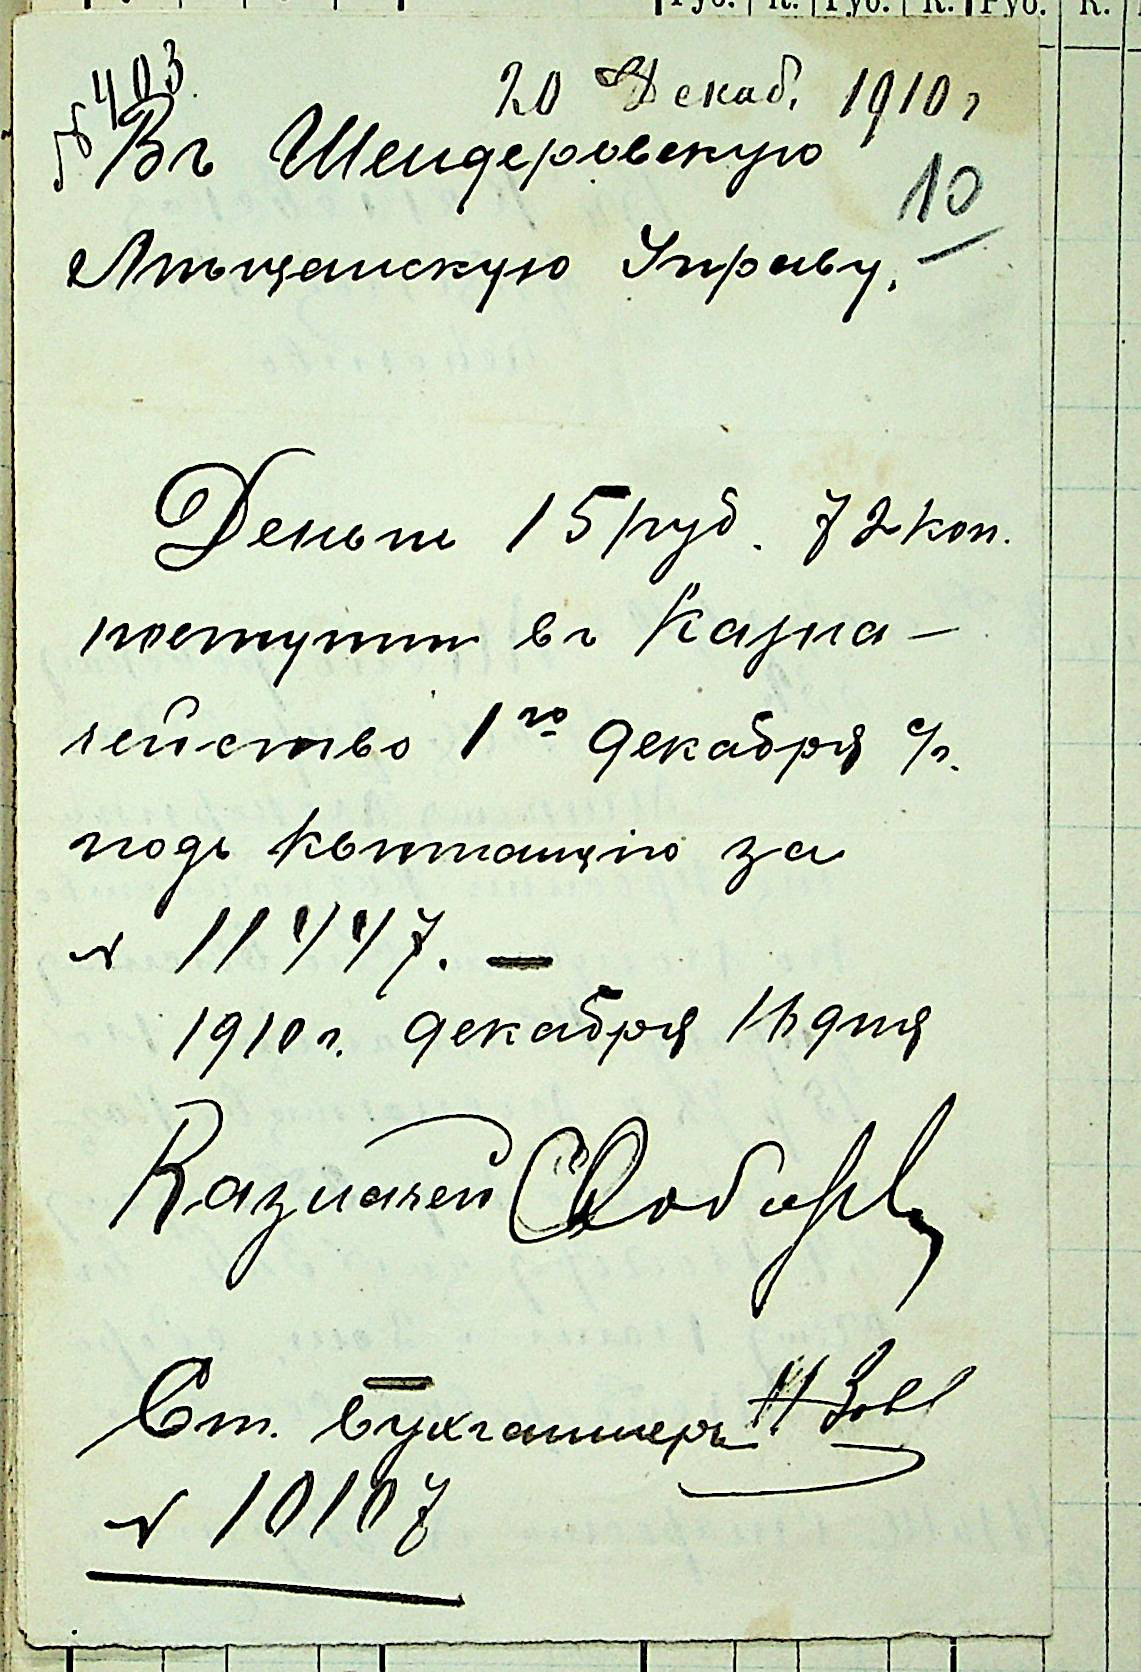 Руб. К. Руб. К. Руб. К.
№ 403
20 Декаб. 1910 г
Въ Шендеровскую
10
Мѣщанскую Управу.
Деньги 15 руб. 72 коп.
поступили въ Казна-
чейство 1го декабря с/г.
подъ квитанцію за
№ 11447. —
1910 г. декабря 16 дня
Казначей
Ст. Бухгалтеръ
№ 10107